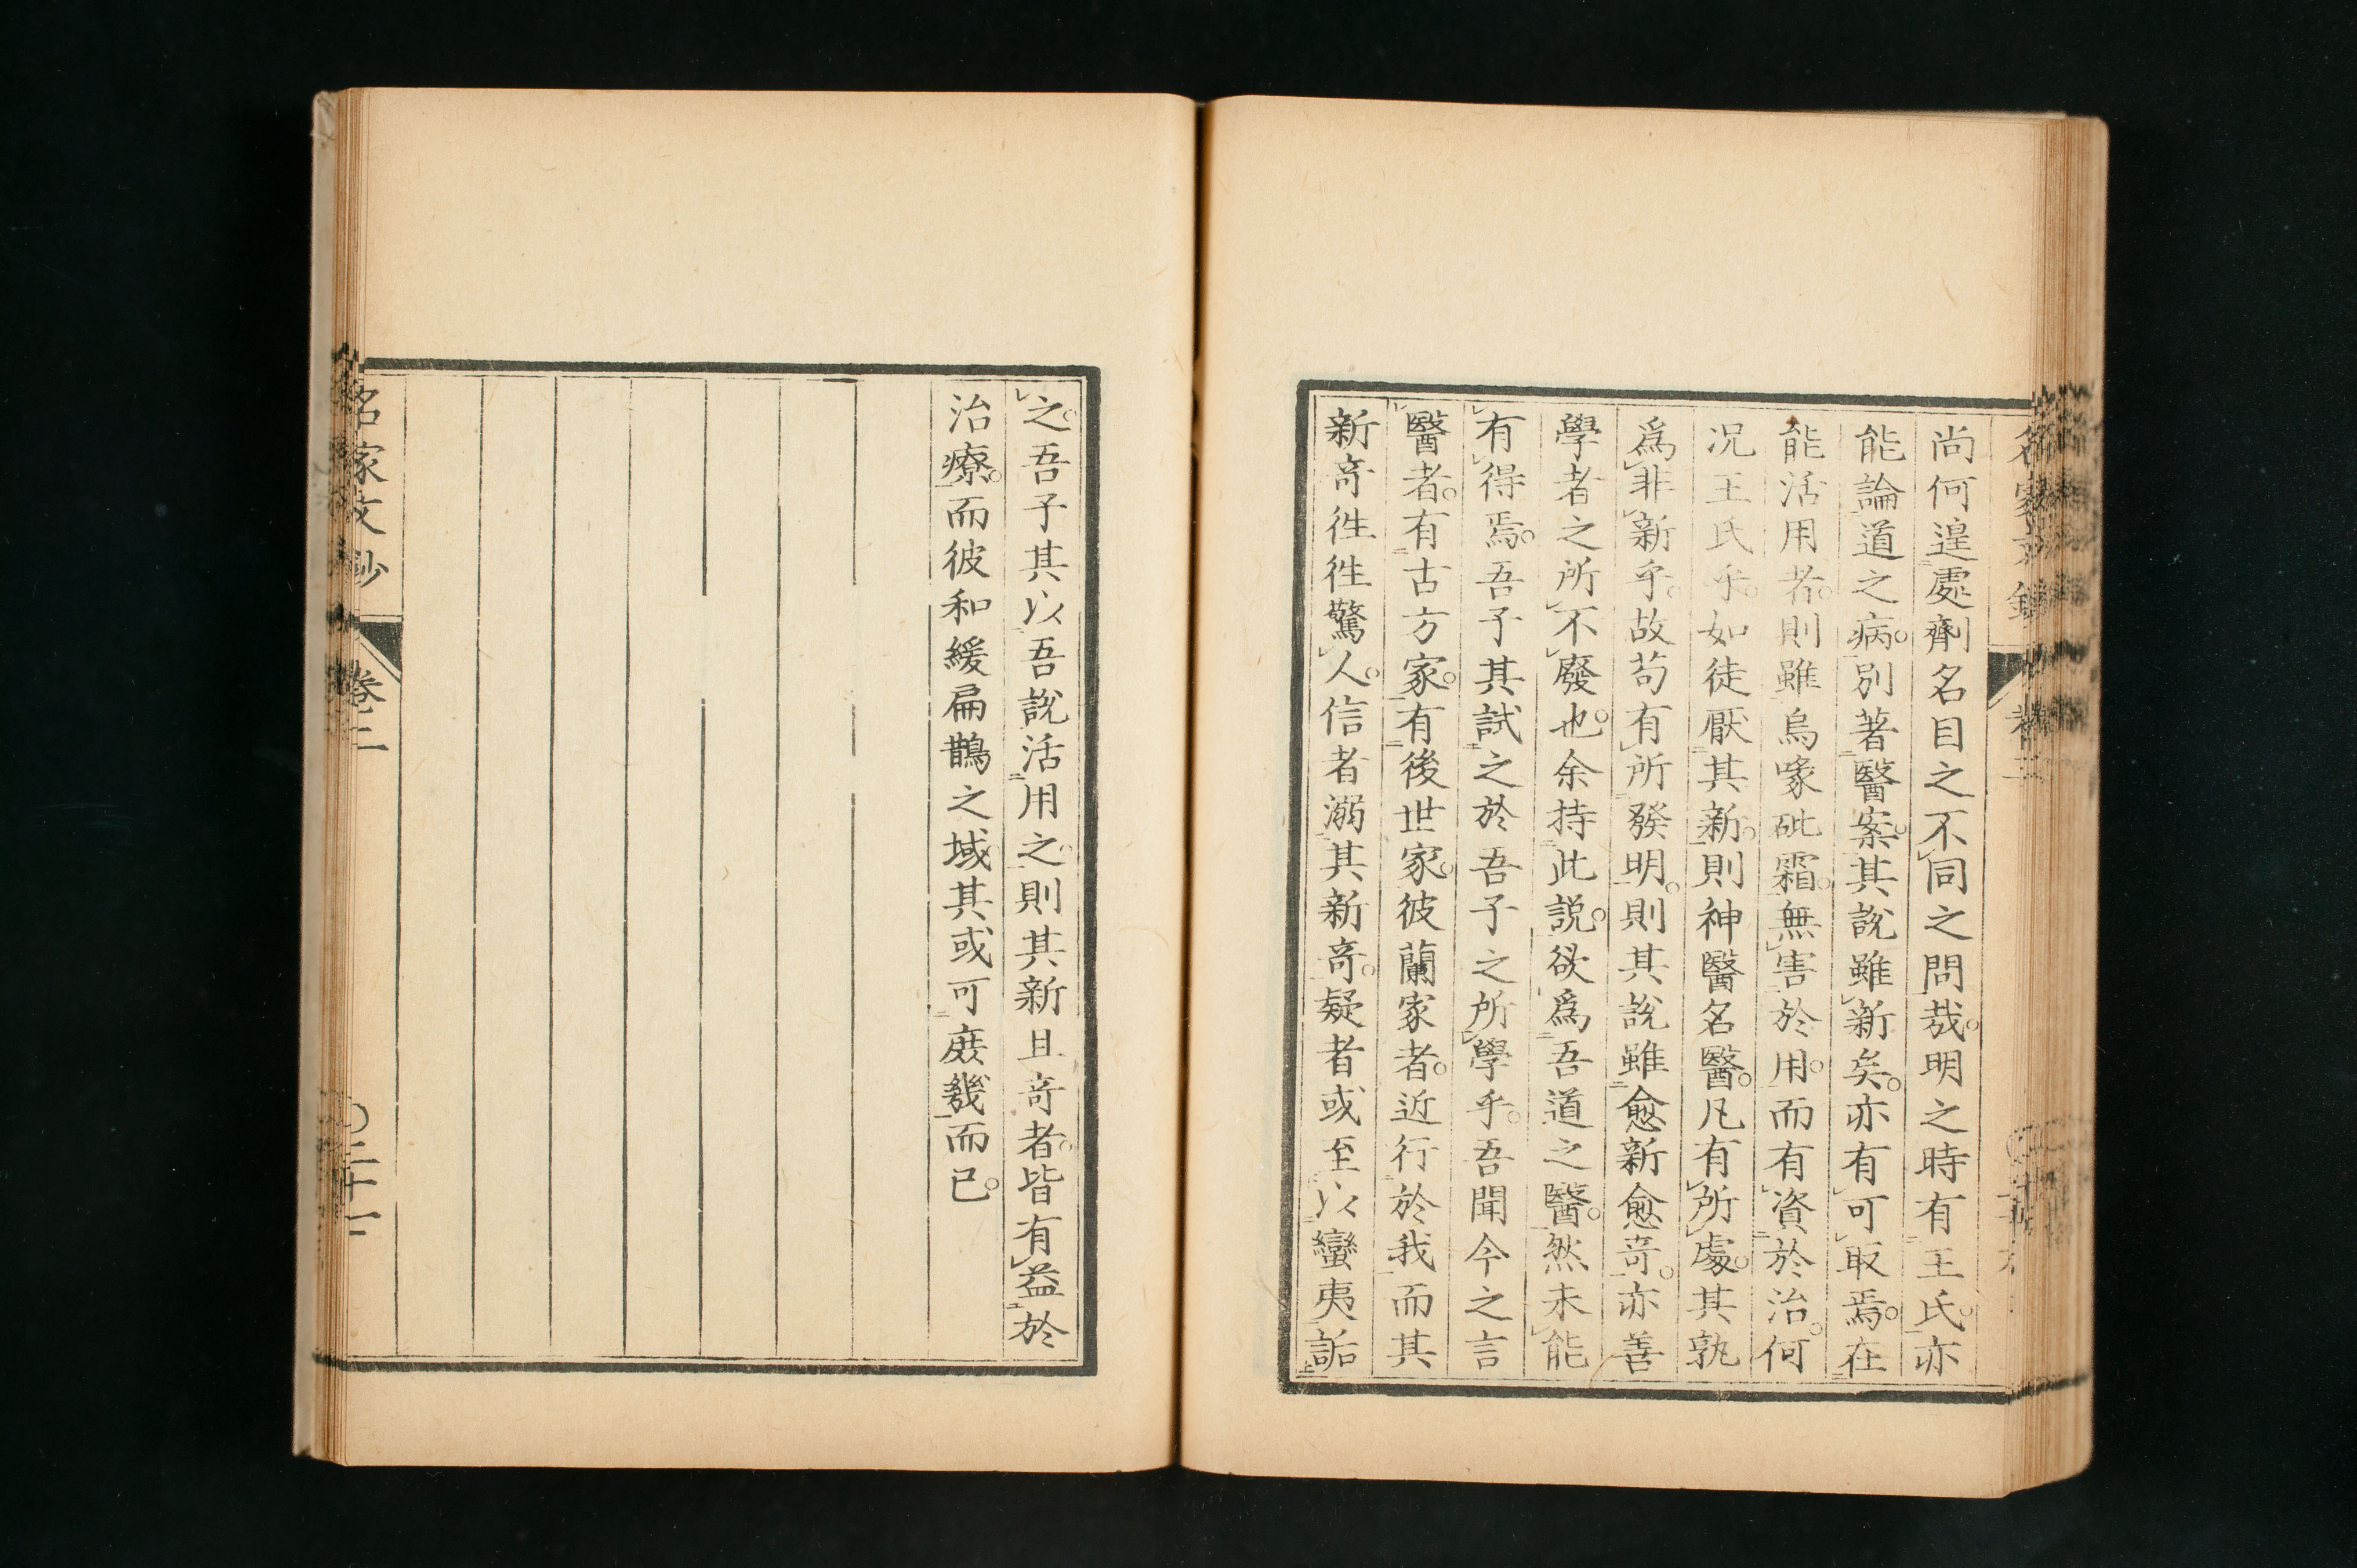 尚何遑處劑名目之不同之問哉。明之時有王氏。亦
能論道之病。別著醫案。其說雖新矣。亦有可取焉。在
能活用者。則雖烏喙砒霜。無害於用。而有資於治。何
况王氏乎。如徒厭其新。則神醫名醫。凡有所處。其孰
爲非新乎。故苟有所發明。則其說雖愈新愈奇。亦善
學者之所不廢也。余持此說。欲爲吾道之醫。然未能
有得焉。吾子其試之於吾子之所學乎。吾聞今之言
醫者。有古方家。有後世家。彼蘭家者。近行於我而其
新奇徃徃驚人。信者溺其新奇。疑者或至以蠻夷詬
之。吾子其以吾說活用之。則其新且奇者。皆有益於
治療。而彼和緩扁鵲之域。其或可庶幾而已。
名家文鈔
卷二
〇二十一